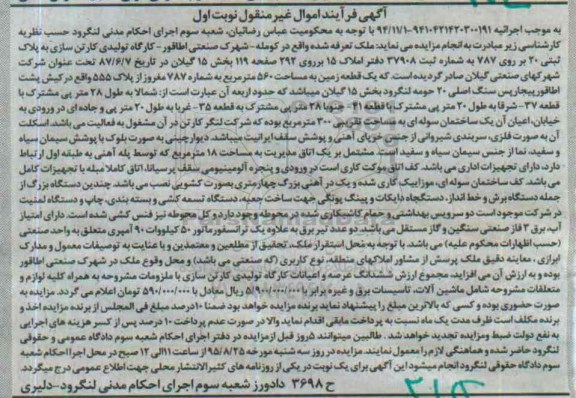 آگهی فرآیند اموال غیر منقول نوبت اول
به موجب اجرائیه ۹۴۱۰۴۲۱۴۲۰۳۰۰۱۹۱-۹۴/۱۱/۱ با توجه به محکومیت عباس رضائیان، شعبه سوم اجرای احکام مدنی لنگرود حسب نظریه
کارشناسی زیر مبادرت به انجام مزایده می نماید: ملک تعرفه شده واقع در کومله-شهرک صنعتی اطاقور-کارگاه تولیدی کارتن سازی به پلاک
ثبتی ۲۰ بر روی ۷۸۷ به شماره ثبت ۳۷۹۰۸ دفتر املاک ۱۵ برروی ۲۹۲ صفحه ۱۱۹ بخش ۱۵ گیلان در تاریخ ۸۷/۶/۷ تحت عنوان شرکت
شهرکهای صنعتی گیلان صادر گردیده است. که یک قطعه زمین به مساحت ۵۶۰ مترمربع به شماره ۷۸۷ مفروز از پلاک ۵۵۵ واقع در کیش پشت
اطاقور پیجارپس سنگ اصلی ۲۰ حومه لنگرود بخش ۱۵ گیلان میباشد که حدود اربعه آن عبارت است از: شمالا به طول ۲۸ متر پی مشترک با
قطعه ۳۷-شرقا به طول ۲۰ متر پی مشترک با قطعه ۴۱- جنوبا ۲۸ متر پی مشترک به قطعه ۳۵-غربا به طول ۲۰ متر پی و جاده ای در ورودی به
خیابان، اعیان آن یک ساختمان سوله ای به مساحت تقریبی ۳۰۰ مترمربع بوده که شرکت لنگر کارتن در آن مشغول به فعالیت می باشد. اسکلت
آن به صورت فلزی، سربندی شیروانی از جنس خرپای آهنی و پوشش سقف ایرانیت میباشد. دیوارچینی به صورت بلوک با پوشش سیمان سیاه
و سفید، نما از جنس سیمان سیاه و سفید است. مشتمل بر یک اتاق مدیریت به مساحت ۱۸ مترمربع که توسط پله آهنی به طبقه اول ارتباط
دارد، دارای تجهیزات اداری می باشد. کف اتاق موکت کاری است در ورودی و پنجره آلومینیومی سقف پرسیانا، اتاق کاملا مبله با تجهیزات کامل
می باشد. کف ساختمان سوله ای، موزاییک کاری شده و یک در آهنی بزرگ چهارمتری بصورت کشویی نصب می باشد. چندین دستگاه بزرگ از
جمله دستگاه برش و خط انداز، دستگاه دایکات و پینگ پونگی جهت ساخت جعبه، دستگاه تسمه کشی و بسته بندی، چاپ و دستگاه لمنیت
در شرکت موجود است دو سرویس بهداشتی و حمام کاشیکاری شده در محوطه وجود دارد و کل محوطه نیز فنس کشی شده است. دارای امتیاز
آب، برق ۳ فاز صنعتی سنگین و گاز مستقل می باشد. دو عدد تیر برق به علاوه یک ترانسفورماتور ۵۰ کیلووات ۹۰ آمپری متعلق به واحد صنعتی
(حسب اظهارات محکوم علیه) می باشد. با توجه به محل استقرار ملک، تحقیق از مطلعین و معتمدین و با عنایت به توصیفات معمول و مدارک
ابرازی، معاینه دقیق ملک پرسش از مشاور املاکهای منطقه، نوع کاربری (که صنعتی می باشد) و محل وقوع ملک در شهرک صنعتی اطاقور
بوده و به ارزش آن می افزاید، مجموع ارزش ششدانگ عرصه و اعیانات کارگاه تولیدی کارتن سازی با ملزومات مشروحه به همراه کلیه لوازم و
متعلقات مشروحه شامل ماشین آلات، تاسیسات برق و غیره برابر با ۵/۹۰۰/۰۰۰/۰۰۰ ریال معادل با ۵۹۰/۰۰۰/۰۰۰ تومان اعلام می گردد. مزایده به
صورت حضوری بوده و کسی که بالاترین مبلغ را پیشنهاد نماید برنده مزایده خواهد بود ضمنا ۱۰درصد مبلغ فی المجلس از برنده مزایده اخذ و
برنده مکلف است ظرف مدت یک ماه نسبت به پرداخت مابقی اقدام نماید والا در صورت عدم پرداخت ۱۰ درصد پس از کسر هزینه های اجرایی
به نفع دولت ضبط و مزایده تجدید خواهد شد. طالبین میتوانند ۵روز قبل از مزایده در دفتر اجرای احکام شعبه سوم دادگاه عمومی و حقوقی
لنگرود حاضر شده و هماهنگی لازم را معمول نمایند. مزایده در روز سه شنبه مورخه ۹۵/۸/۲۵ از ساعت ۱۱الی ۱۲ صبح در محل اجرا احکام شعبه
سوم دادگاه حقوقی لنگرود انجام میشود این آگهی برای یک نوبت در یکی از روزنامه های کثیرالانتشار محلی جهت اطلاع عمومی درج میگردد.
ح ۳۶۹۸ دادورز شعبه سوم اجرای احکام مدنی لنگرود-دلیری